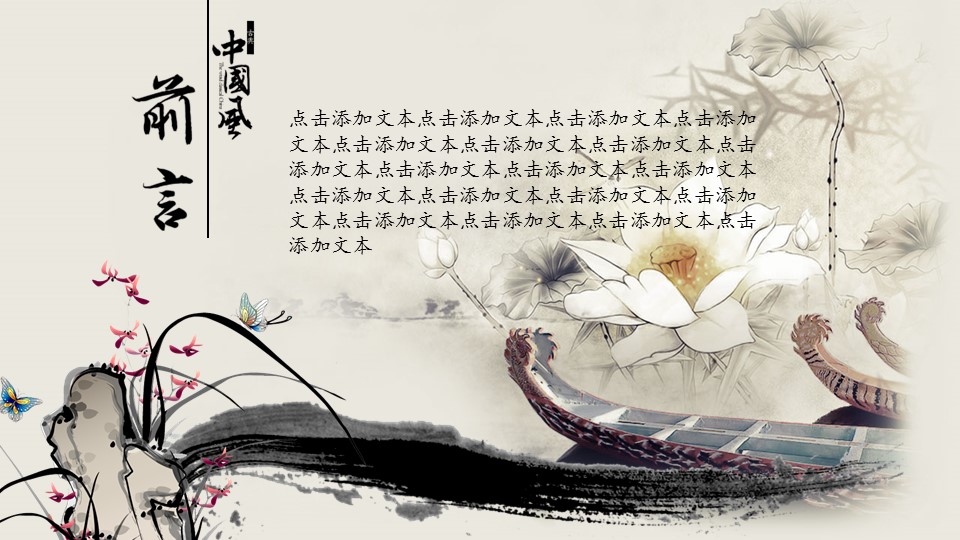 前言
中國風
点击添加文本点击添加文本点击添加文本点击添加
文本点击添加文本点击添加文本点击添加文本点击
添加文本点击添加文本点击添加文本点击添加文本
点击添加文本点击添加文本点击添加文本点击添加
文本点击添加文本点击添加文本点击添加文本点击
添加文本